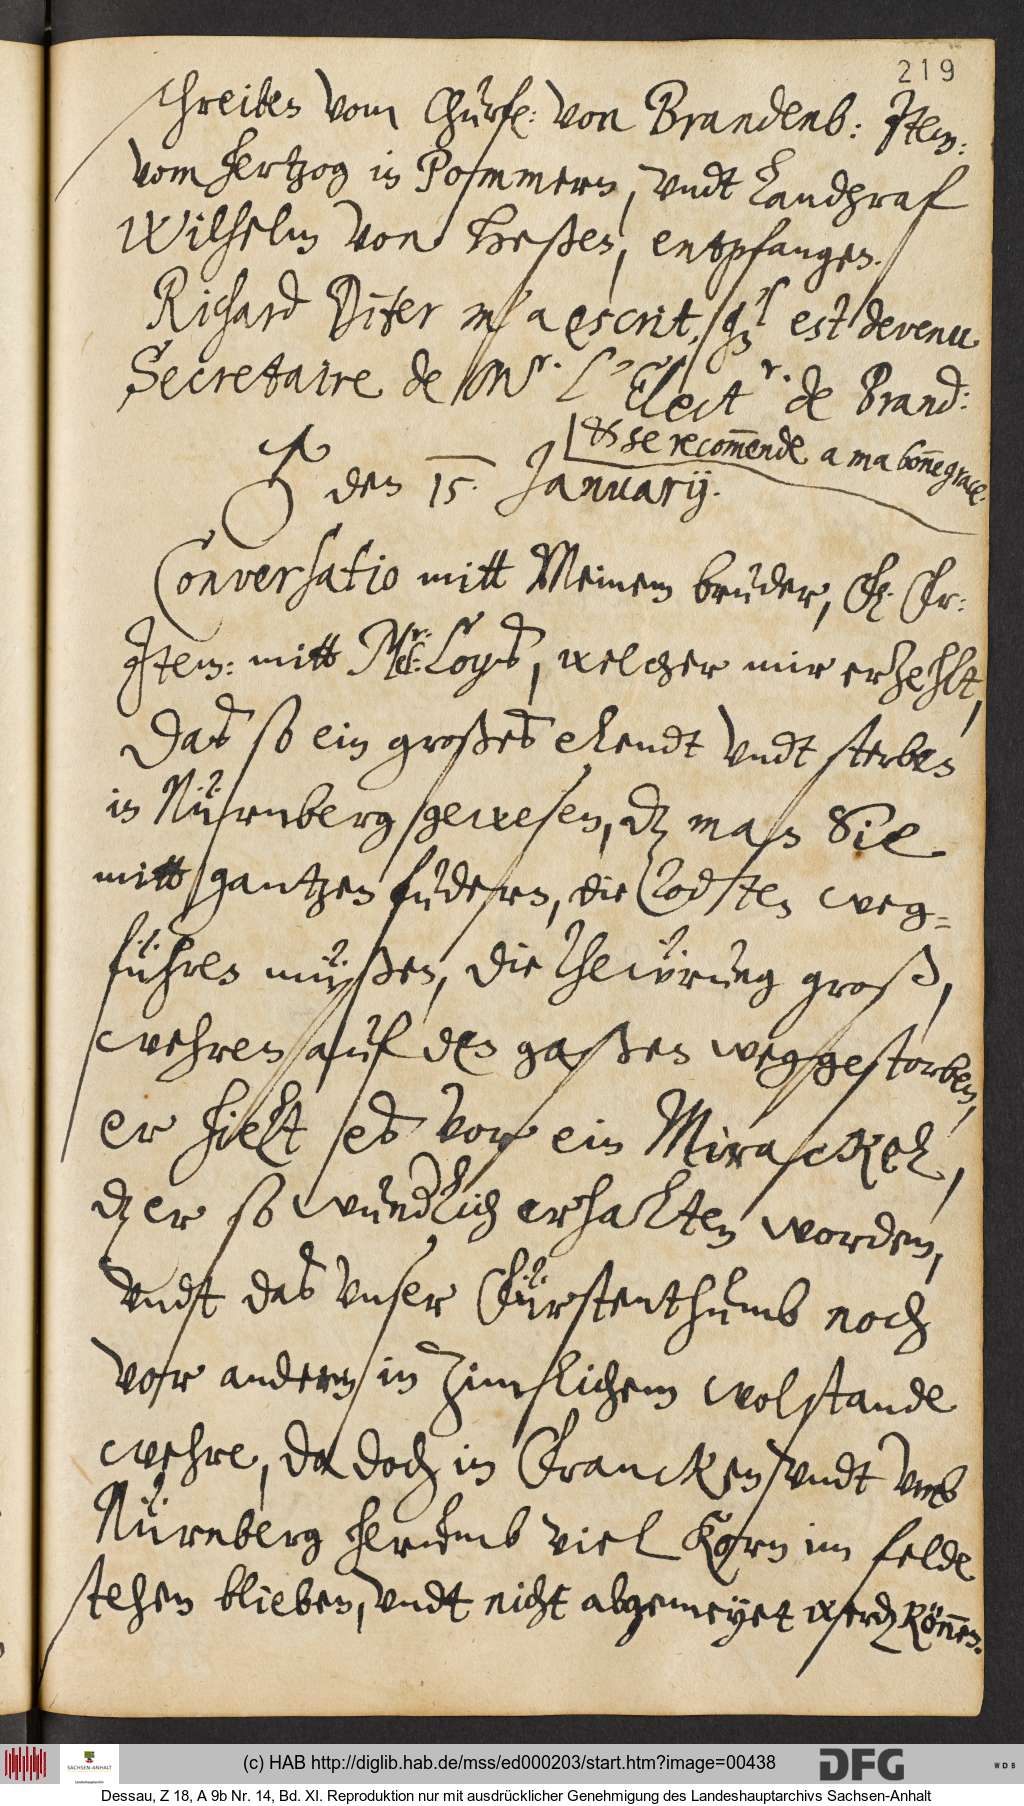 219
Schreiben vom Churf: von Brandenb: Item:
vom hertzog in Pommern, vndt Landgraf
Wilhelm von Heßen, entpfangen.
Richard Diter m'a escrit, qu'il est devenu
Secretaire de Mr. L'Elect.r de Brand:
& se recom̄ende a ma bon̄e grace.
den 15. January.
Conversatio mitt Meinem bruder, F. Fr:
Item: mitt Mr: Loys, welcher mir erzehlt,
Das so ein großes elendt vndt sterben
in Nürnberg gewesen, dz man Sie
mitt gantzen fudern, die Todten weg=
führen müßen, die Thewrung groß,
wehren auf den gaßen weggestorben,
er hielt es vor ein Mirackel,
dz er so wundlich erhalten worden,
vndt das vnser Fürstenthumb noch
vor andern in zimlichem wolstande
wehre, da doch in Francken vndt vmb
Nürnberg herumb viel Korn im felde
stehen blieben, vndt nicht abgemeyet werden kön̄en.
(c) HAB http://diglib.hab.de/mss/ed000203/start.htm?image=00438
SACHSEN-ANHALT
DFG
WDB
Dessau, Z 18, A 9b Nr. 14, Bd. XI. Reproduktion nur mit ausdrücklicher Genehmigung des Landeshauptarchivs Sachsen-Anhalt